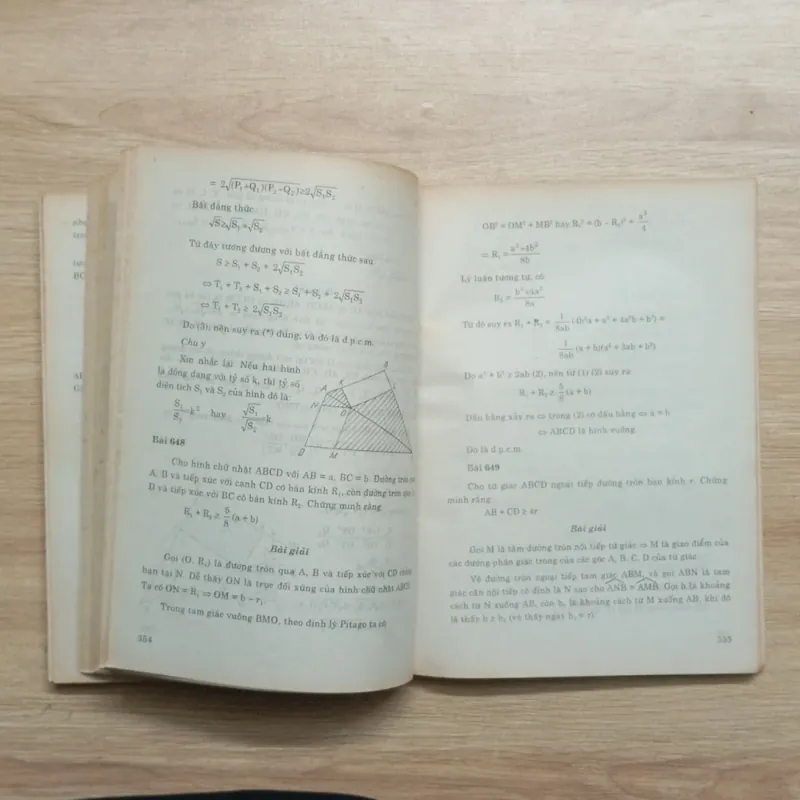 = 2√(P₁+Q₁)(P₂+Q₂) ≥ 2√S₁S₂
Bất đẳng thức
√S ≥ √S₁ + √S₂
Từ đây tương đương với bất đẳng thức sau
S ≥ S₁ + S₂ + 2√S₁S₂
⇔ T₁ + T₂ + S₁ + S₂ ≥ S₁ + S₂ + 2√S₁S₂
⇔ T₁ + T₂ ≥ 2√S₁S₂
Do (3), nên suy ra (*) đúng, và đó là đ.p.c.m.
Chú ý
Xin nhắc lại: Nếu hai hình
là đồng dạng với tỷ số k, thì tỷ số
diện tích S₁ và S₂ của hình đó là:
S₁/S₂ = k² hay √S₁/√S₂ = k
A K B
N L
D M
Bài 648
Cho hình chữ nhật ABCD với AB = a, BC = b. Đường tròn qua
A, B và tiếp xúc với cạnh CD có bán kính R₁, còn đường tròn qua
D và tiếp xúc với BC có bán kính R₂. Chứng minh rằng
R₁ + R₂ ≥ 5/8 (a + b)
Bài giải
Gọi (O, R₁) là đường tròn qua A, B và tiếp xúc với CD
hạn tại N. Dễ thấy ON là trục đối xứng của hình chữ nhật ABCD
Ta có ON = R₁ ⇒ OM = b – r₁.
Trong tam giác vuông BMO, theo định lý Pitago ta có
354
OB² = OM² + MB² hay R₁² = (b - R₁)² + a²/4
⇒ R₁ = (a²+4b²)/8b
Lý luận tương tự, có
R₂ = (b²+4a²)/8a
Từ đó suy ra R₁ + R₂ = 1/8ab (4b³a + a³ + 4a³b + b³) =
1/8ab (a + b)(a² + 3ab + b²)
Do a² + b² ≥ 2ab (2), nên từ (1) (2) suy ra:
R₁ + R₂ ≥ 5/8 (a + b)
Dấu bằng xảy ra ⇔ trong (2) có dấu bằng ⇔ a = b
⇔ ABCD là hình vuông.
Đó là đ.p.c.m.
Bài 649
Cho tứ giác ABCD ngoại tiếp đường tròn bán kính r. Chứng
minh rằng:
AB + CD ≥ 4r
Bài giải
Gọi M là tâm đường tròn nội tiếp tứ giác ⇒ M là giao điểm của
các đường phân giác trong của các góc A, B, C, D của tứ giác.
Vẽ đường tròn ngoại tiếp tam giác ABM, và gọi ABN là tam
giác cân nội tiếp cố định là N sao cho ANB = AMB. Gọi h là khoảng
cách từ N xuống AB, còn h₁ là khoảng cách từ M xuống AB, khi đó
là thấy h ≥ h₁ (và thấy ngay h₁ = r)
355